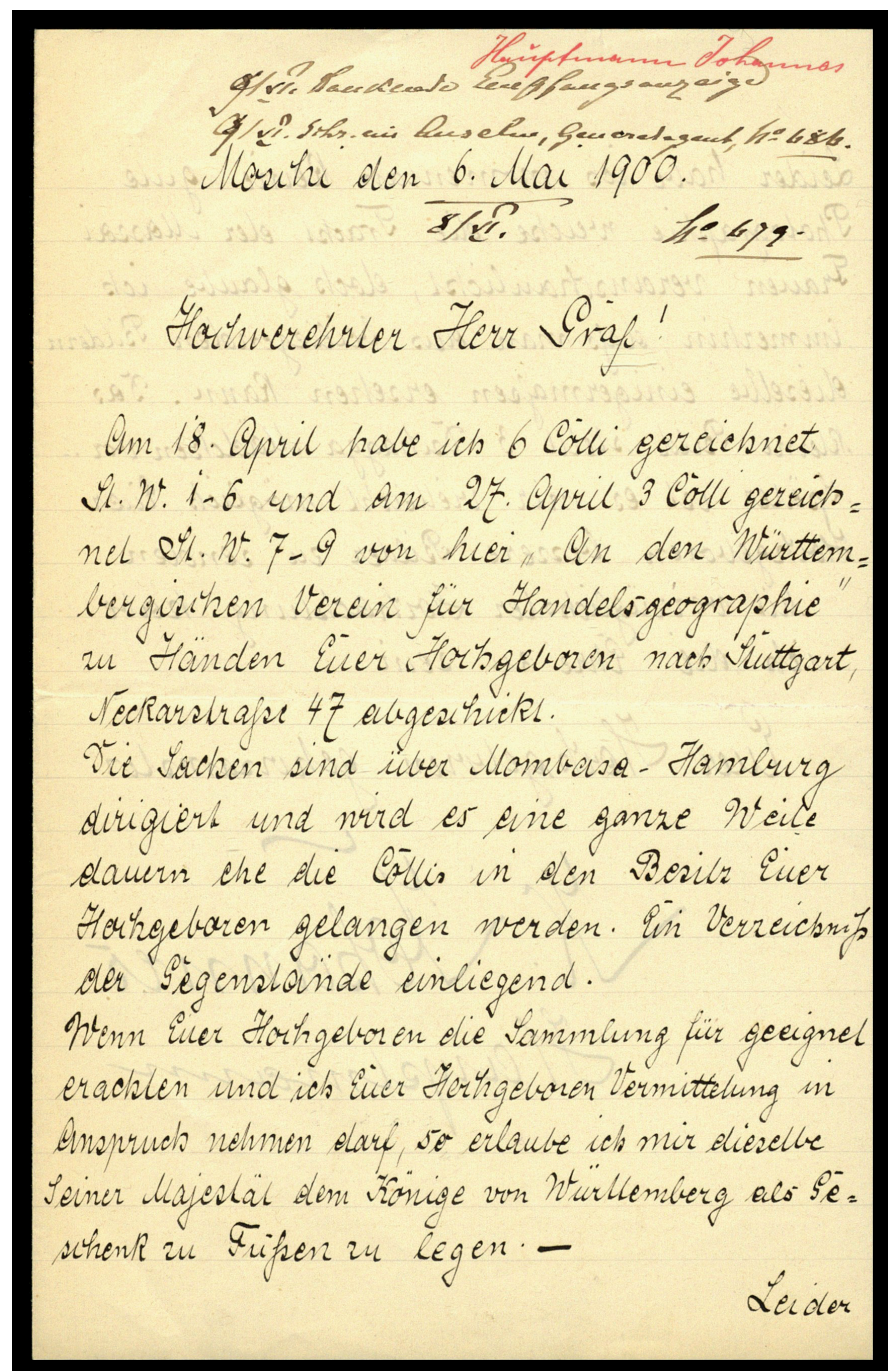 Hauptmann Johannes
9/VI. dankende Empfangsanzeige
9/VI. Schr. an Anselm, Generalagent, No 686.
Moschi den 6. Mai 1900.
8/VI. No 679.
Hochverehrter Herr Graf!
Am 18. April habe ich 6 Cölli gezeichnet
St. W. 1-6 und am 27. April 3 Cölli gezeich=
net St. W. 7-9 von hier „An den Württem=
bergischen Verein für Handelsgeographie"
zu Händen Euer Hochgeboren nach Stuttgart,
Neckarstraße 47 abgeschickt.
Die Sachen sind über Mombasa - Hamburg
dirigiert und wird es eine ganze Weile
dauern ehe die Cöllis in den Besitz Euer
Hochgeboren gelangen werden. Ein Verzeichniß
der Gegenstände einliegend.
Wenn Euer Hochgeboren die Sammlung für geeignet
erachten und ich Euer Hochgeboren Vermittelung in
Anspruch nehmen darf, so erlaube ich mir dieselbe
Seiner Majestät dem Könige von Württemberg als Ge=
schenk zu Füßen zu legen. —
Leider